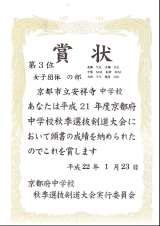 賞状
第3位
女子団体 の部
京都市立安祥寺 中学校
あなたは平成21年度京都府
中学校秋季選抜剣道大会に
おいて頭書の成績を納められた
のでこれを賞します
平成22年 1月23日
京都府中学校
秋季選抜剣道大会実行委員会